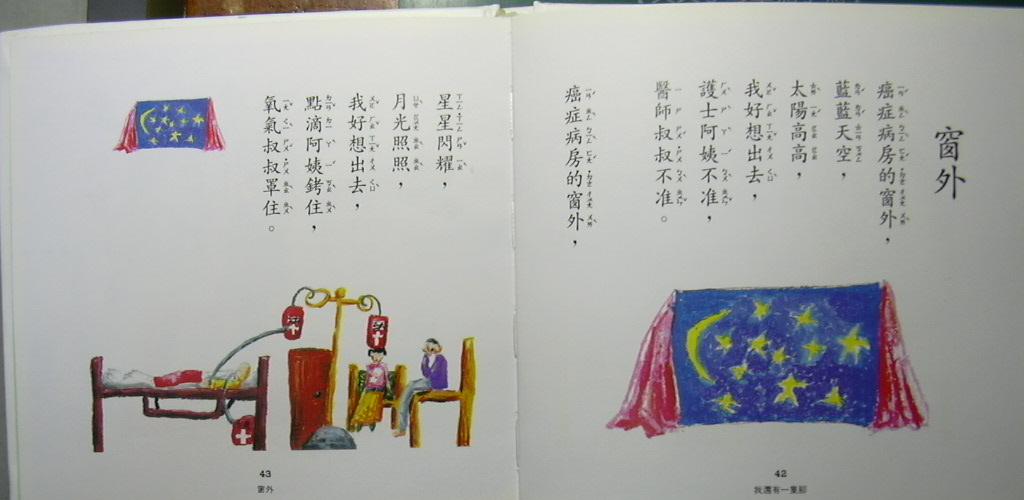 窗外
癌症病房的窗外，
藍藍天空，
太陽高高，
我好想出去，
護士阿姨不准，
醫師叔叔不准。
癌症病房的窗外，
42
我還有一隻腳
星星閃耀，
月光照照，
我好想出去，
點滴阿姨銬住，
氧氣叔叔罩住。
43
窗外